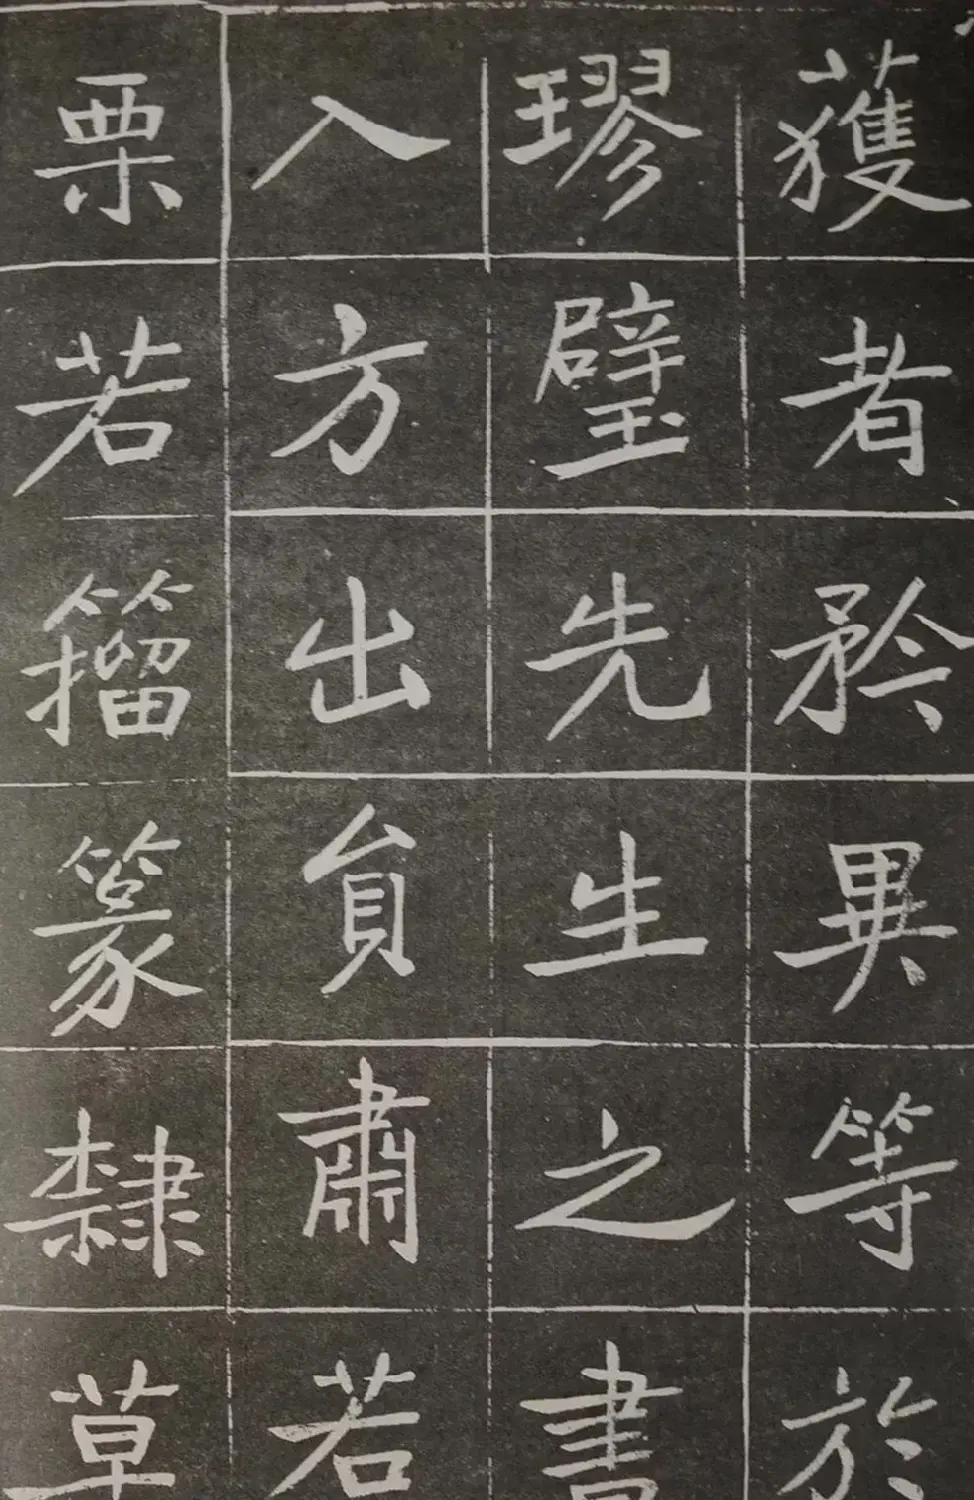 獲者矜異等於
璆璧先生之書
入方出員肅若
栗若籀篆隸草